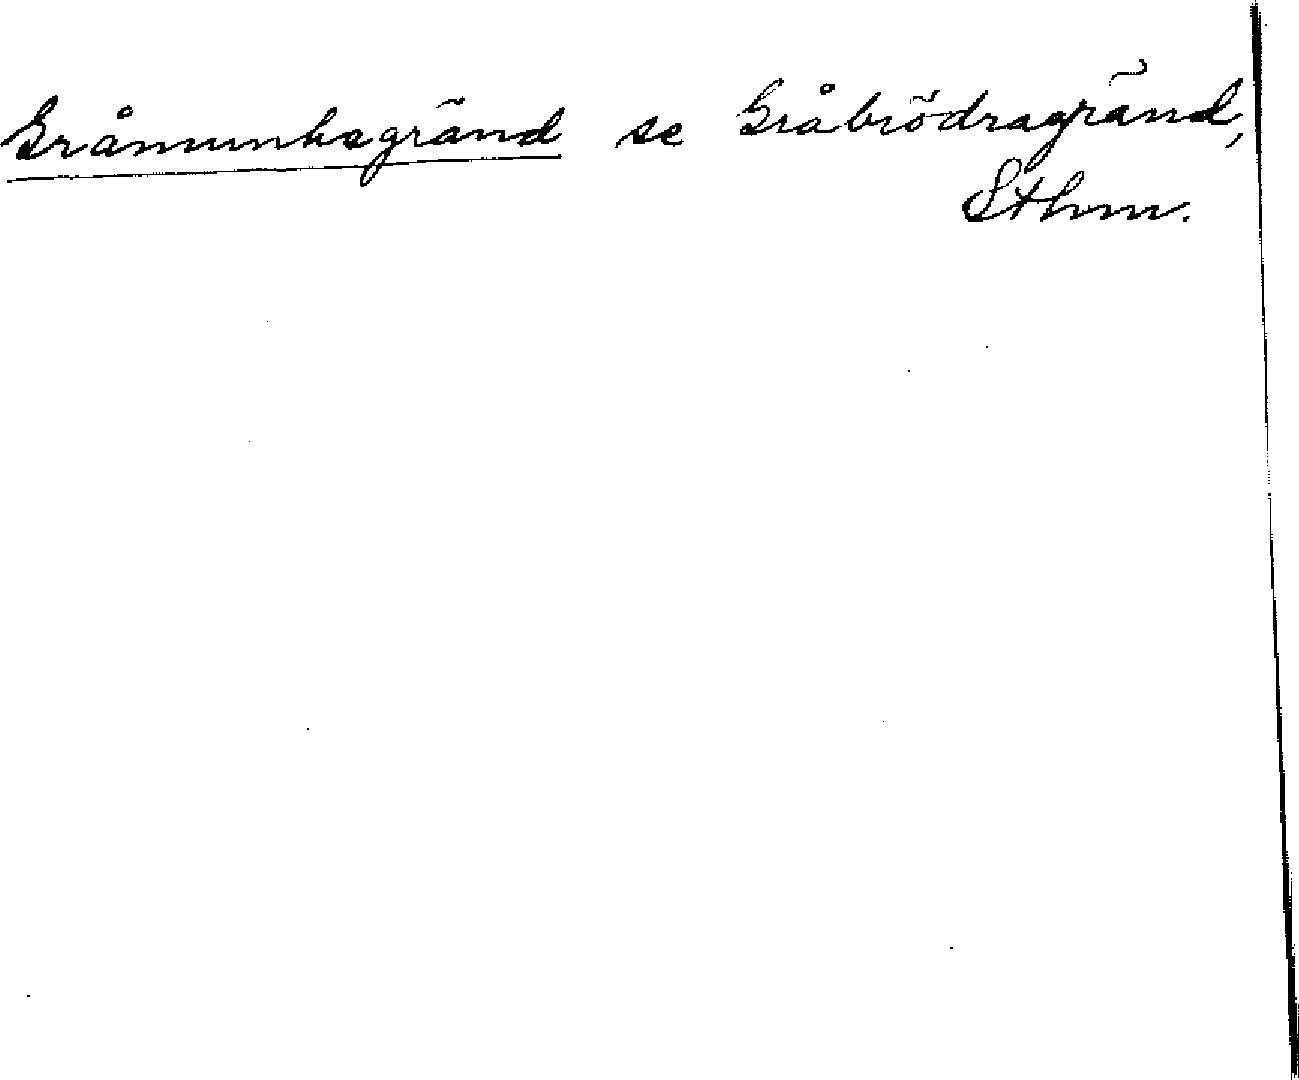 Gråmunksgränd se Gråbrödragränd,
Sthm.